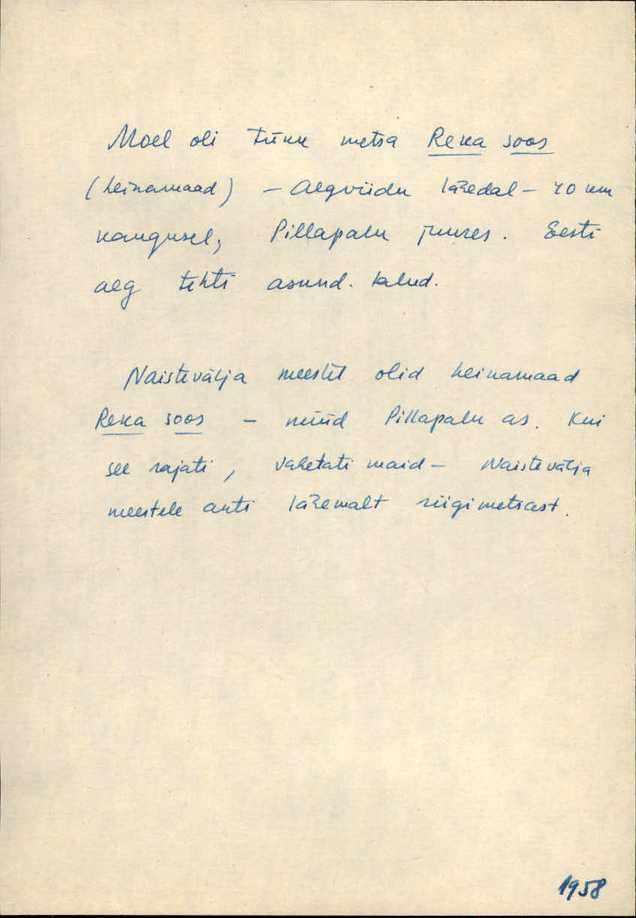 Moel oli tükk metsa Reka soos
(heinamaad) – Aegviidu lähedal – 40 km
kaugusel, Pillapalu juures. Eesti
aeg tehti asund. talud.
Naistevälja meestel olid heinamaad
Reka soos – nüüd Pillapalu as. Kui
see rajati, vahetati maid – Naistevälja
meestele anti lähemalt riigimetsast.
1958